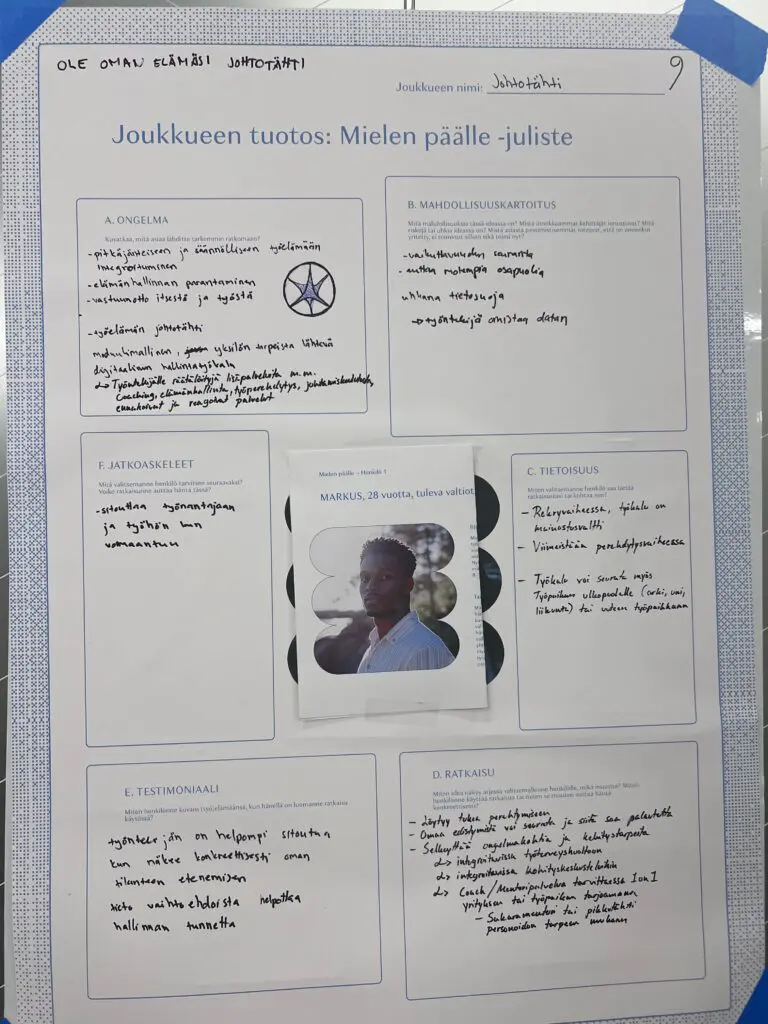 OLE OMAN ELÄMÄSI JOHTOTÄHTI
9
Joukkueen nimi: Johtotähti
Joukkueen tuotos: Mielen päälle -juliste
A. ONGELMA
Kuvatkaa, mitä asiaa lähditte tarkemmin ratkomaan?
- pitkäjänteiseen ja säännölliseen työelämään
integroituminen
- elämänhallinnan parantaminen
- vastuunotto itsestä ja työstä
- työelämän johtotähti
moduulimallinen, yksilön tarpeista lähtevä
digitaalinen hallintatyökalu
↳ Työntekijälle räätälöityjä lisäpalveluita m.m.
Coaching, elämänhallinta, työperehdytys, johtamiskoulutukset,
ennakoivat ja reagoivat palvelut
B. MAHDOLLISUUSKARTOITUS
Mitä mahdollisuuksia tässä ideassa on? Mistä innokkaimmat kehittäjät
- vaikuttavuuden seuranta
- auttaa molempia osapuolia
uhkana tietosuoja
→ työntekijä omistaa datan
F. JATKOASKELEET
Mitä valitsemanne henkilö tarvitsee seuraavaksi?
Voiko ratkaisunne auttaa häntä tässä?
- sitouttaa työnantajaan
ja työhön kun
voimaantuu
Mielen päälle – Henkilö 1
MARKUS, 28 vuotta, tuleva valtiot
C. TIETOISUUS
Miten valitsemanne henkilö saa tietää
ratkaisustasi tai kohtaa sen?
- Rekryvaiheessa, työkalu on
mainostusvaltti
- Viimeistään perehdytysvaiheessa
- Työkalu voi seurata myös
Työpaikan ulkopuolelle (arki, uni,
liikunta) tai uuteen työpaikkaan
E. TESTIMONIAALI
Miten henkilönne kuvaa (työ)elämäänsä, kun hänellä on luomanne ratkaisu
käytössä?
työntekijän on helpompi sitoutua
kun näkee konkreettisesti oman
tilanteen etenemisen
tieto vaihtoehdoista helpottaa
hallinnan tunnetta
D. RATKAISU
Miten idea näkyy arjessa valitsemallenne henkilölle, mikä muuttuu? Miten
henkilönne käyttää ratkaisua tai miten se muuten auttaa häntä
konkreettisesti?
- Löytyy tukea perehtymiseen
- Omaa edistymistä voi seurata ja siitä saa palautetta
- Selkeyttää ongelmakohtia ja kehitystarpeita
↳ integroitavissa työterveyshuoltoon
↳ integroitavissa kehityskeskusteluihin
↳ Coach/Mentoripalvelua tarvittaessa 1 on 1
yrityksen tai työpaikan tarjoamana
- Sukaramentori tai pikkutähti
personoidun tarpeen mukaan